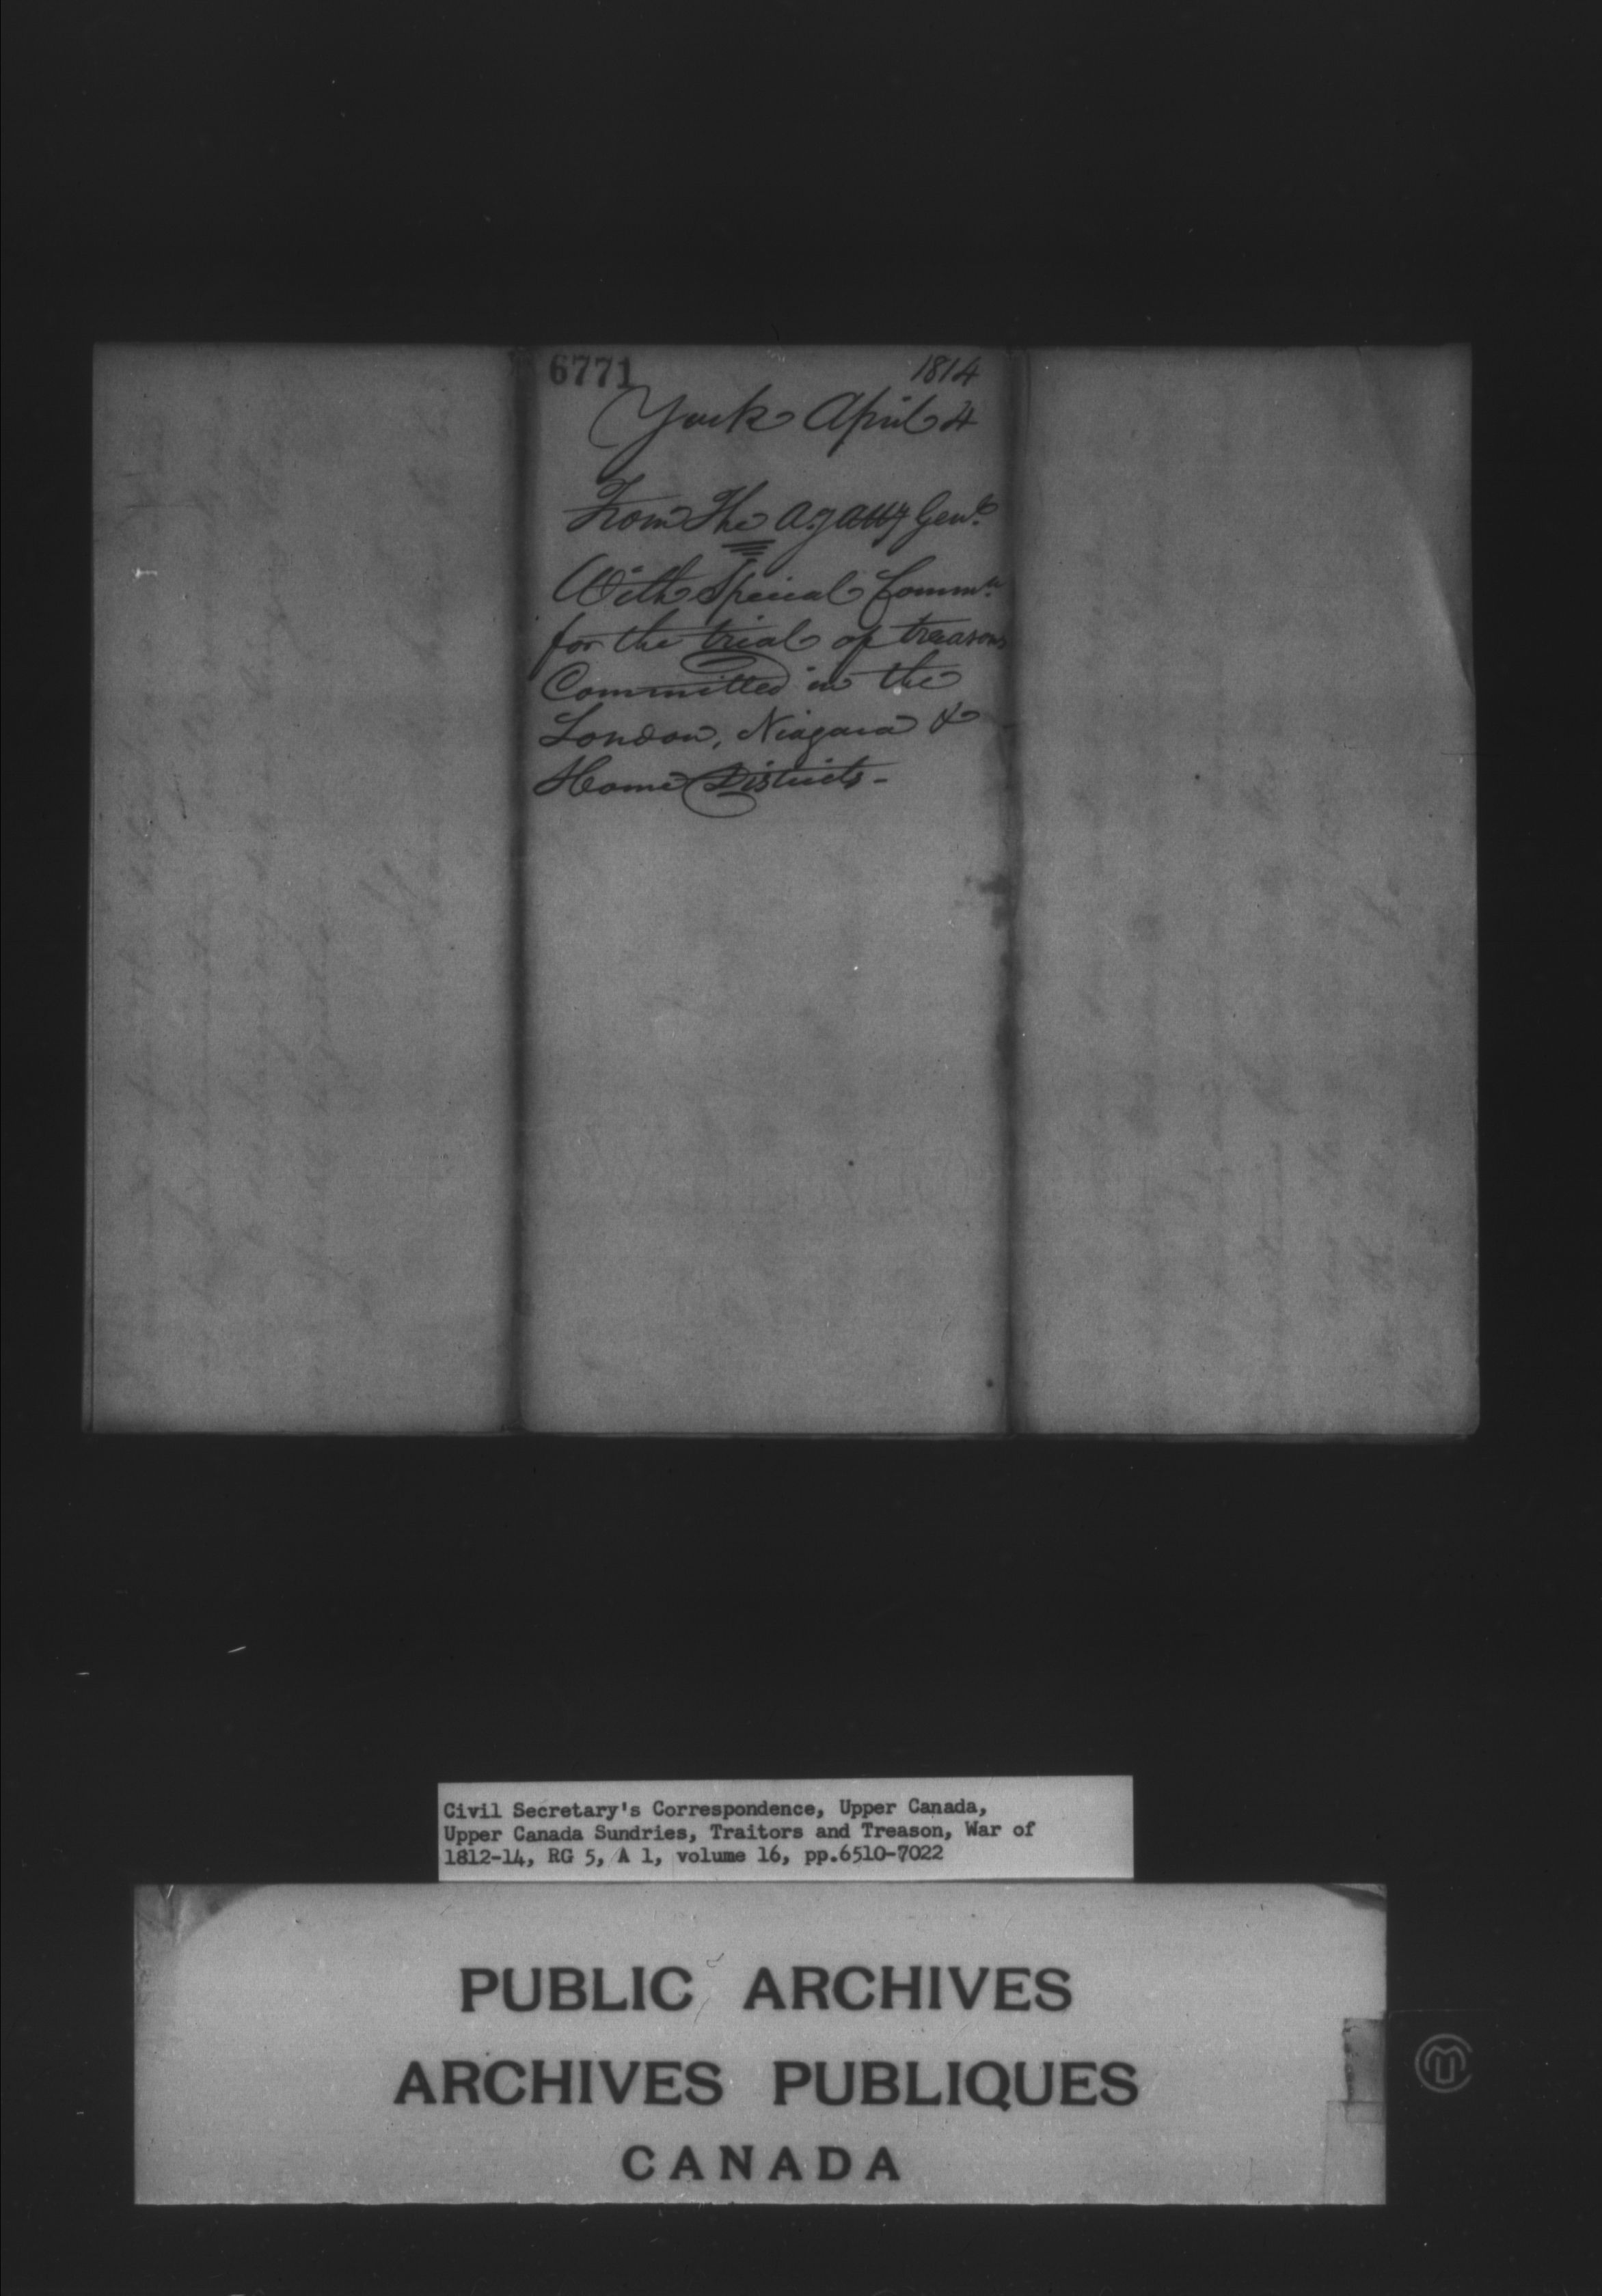 6771
1814
York April 4
From The Ag Atty Genl.
With Special Commn.
for the trial of treasons
Committed in the
London, Niagara &
Home Districts -
Civil Secretary's Correspondence, Upper Canada,
Upper Canada Sundries, Traitors and Treason, War of
1812-14, RG 5, A 1, volume 16, pp.6510-7022
PUBLIC ARCHIVES
ARCHIVES PUBLIQUES
CANADA